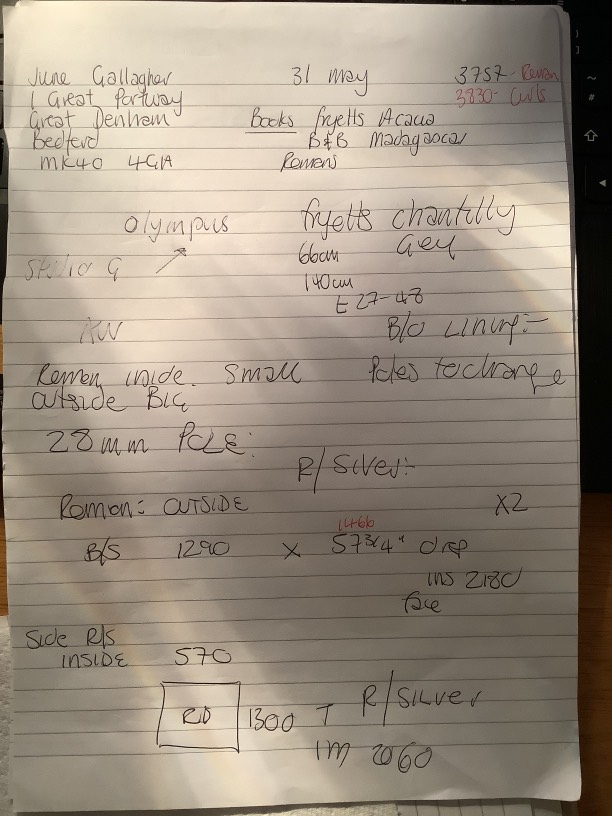 June Gallagher 31 may 3757- Roman
1 Great Portway 3830- Curts
Great Denham Books fryetts Acacia
Bedford B&B Madagascar
MK40 4GA Romans
Olympus fryetts chantilly
66cm Grey
Studio G
140cm
£27-48
B/O Lining:-
Roman inside. Small Poles to change
outside BIG
28mm POLE:
R/Silver:-
Roman: OUTSIDE X2
1466
B/S 1290 x 57 3/4" drop
ins 2180
face
Side R/S
INSIDE 570
RD 1300 T R/Silver
1m 2060